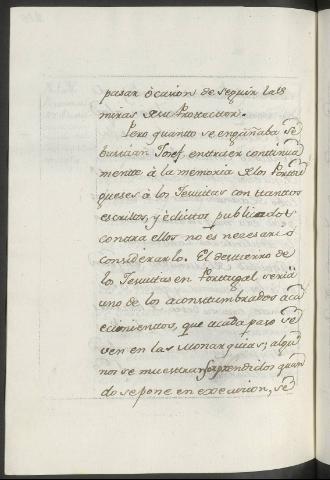 pasar ócacion de seguir las
miras de su Protector.
Pero quanto se engañaba Se
bastian Josef, en traer continua
mente à la memoria de los Portu
gueses à los Jesuitas con tantos
escritos, y edictos publicados
contra ellos no es necesario
considerarlo. El destierro de
los Jesuitas en Portugal seria
uno de los acostumbrados aca
ecimientos, que acada paso se
ven en las Monarquias; algu
nos se muestran sorprendidos quan
do se pone en execucion, se